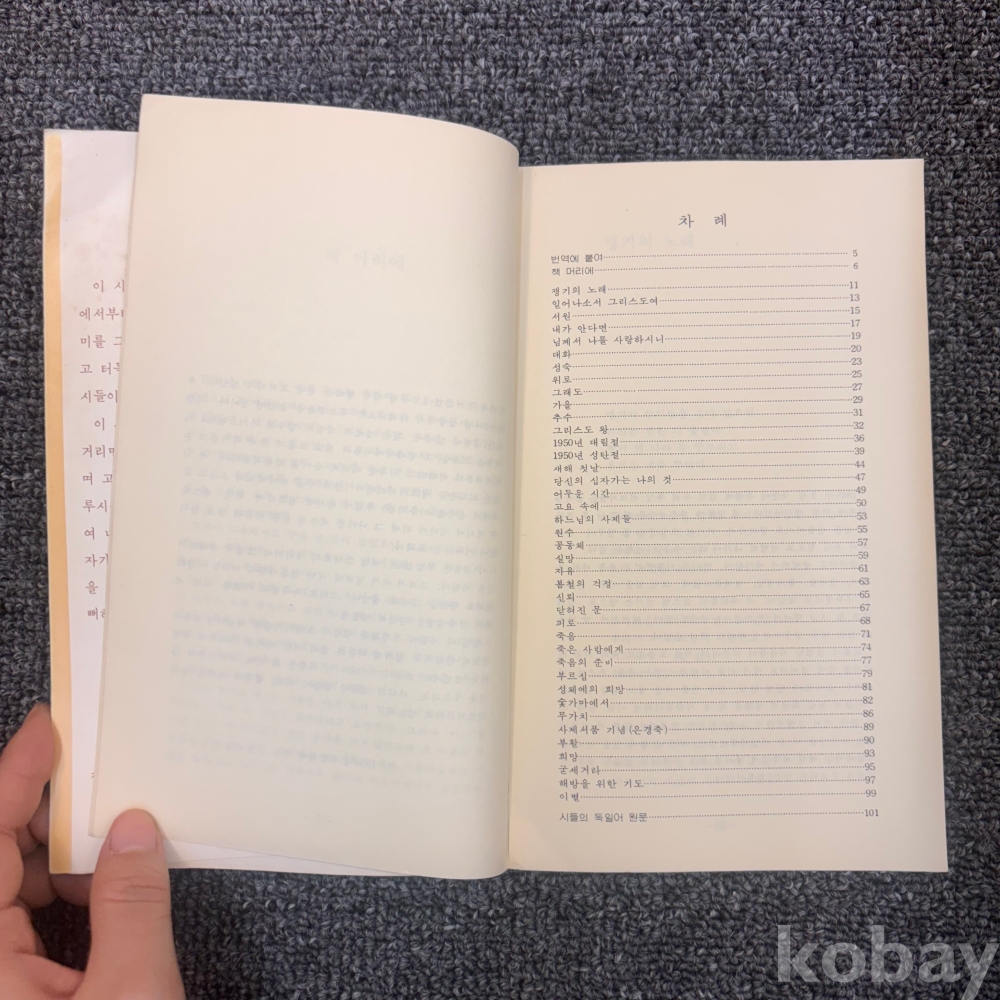 이 시
에서부터
미를 그
고 터득
시들이
이
거리
며 고
루시
여 나
자기
을
뻐하
차 례
번역에 붙여 5
책 머리에 6
쟁기의 노래 11
일어나소서 그리스도여 13
서원 15
내가 안다면 17
님께서 나를 사랑하시니 19
대화 20
성숙 23
위로 25
그래도 27
가을 29
추수 31
그리스도 왕 32
1950년 대림절 36
1950년 성탄절 39
새해 첫날 44
당신의 십자가는 나의 것 47
어두운 시간 49
고요 속에 50
하느님의 사제들 53
원수 55
공동체 57
실망 59
자유 61
봄철의 걱정 63
신뢰 65
닫혀진 문 67
피로 68
죽음 71
죽은 사람에게 74
죽음의 준비 77
부르심 79
성체에의 희망 81
숯가마에서 82
무가치 86
사제서품 기념(은경축) 89
부활 90
희망 93
굳세거라 95
해방을 위한 기도 97
이별 99
시들의 독일어 원문 101
kobay